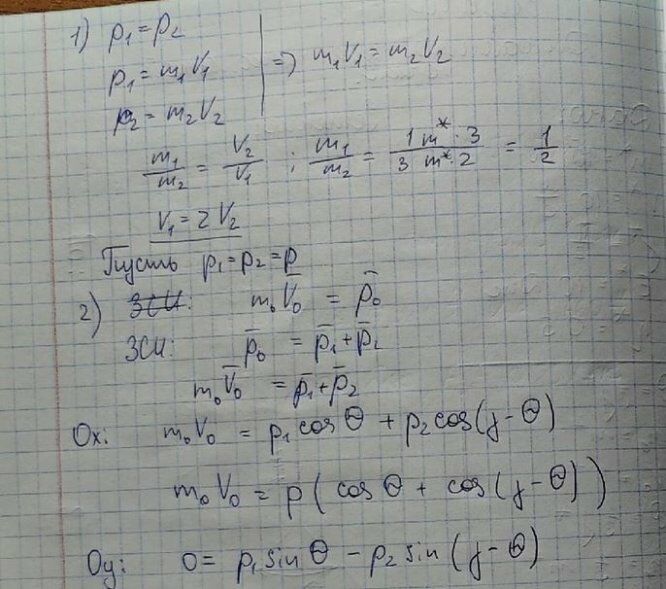 1) p₁ = p₂
p₁ = m₁V₁ | => m₁V₁ = m₂V₂
p₂ = m₂V₂
m₁/m₂ = V₂/V₁ ; m₁/m₂ = 1 m* · 3 / 3 m* · 2 = 1/2
V₁ = 2V₂
Пусть p₁ = p₂ = p
2) ЗСИ: m₀V̄₀ = p̄₀
ЗСИ: p̄₀ = p̄₁ + p̄₂
m₀V̄₀ = p̄₁ + p̄₂
Ox: m₀V₀ = p₁ cos Θ + p₂ cos(γ - Θ)
m₀V₀ = p( cos Θ + cos (γ - Θ) )
Oy: 0 = p₁ sin Θ - p₂ sin (γ - Θ)